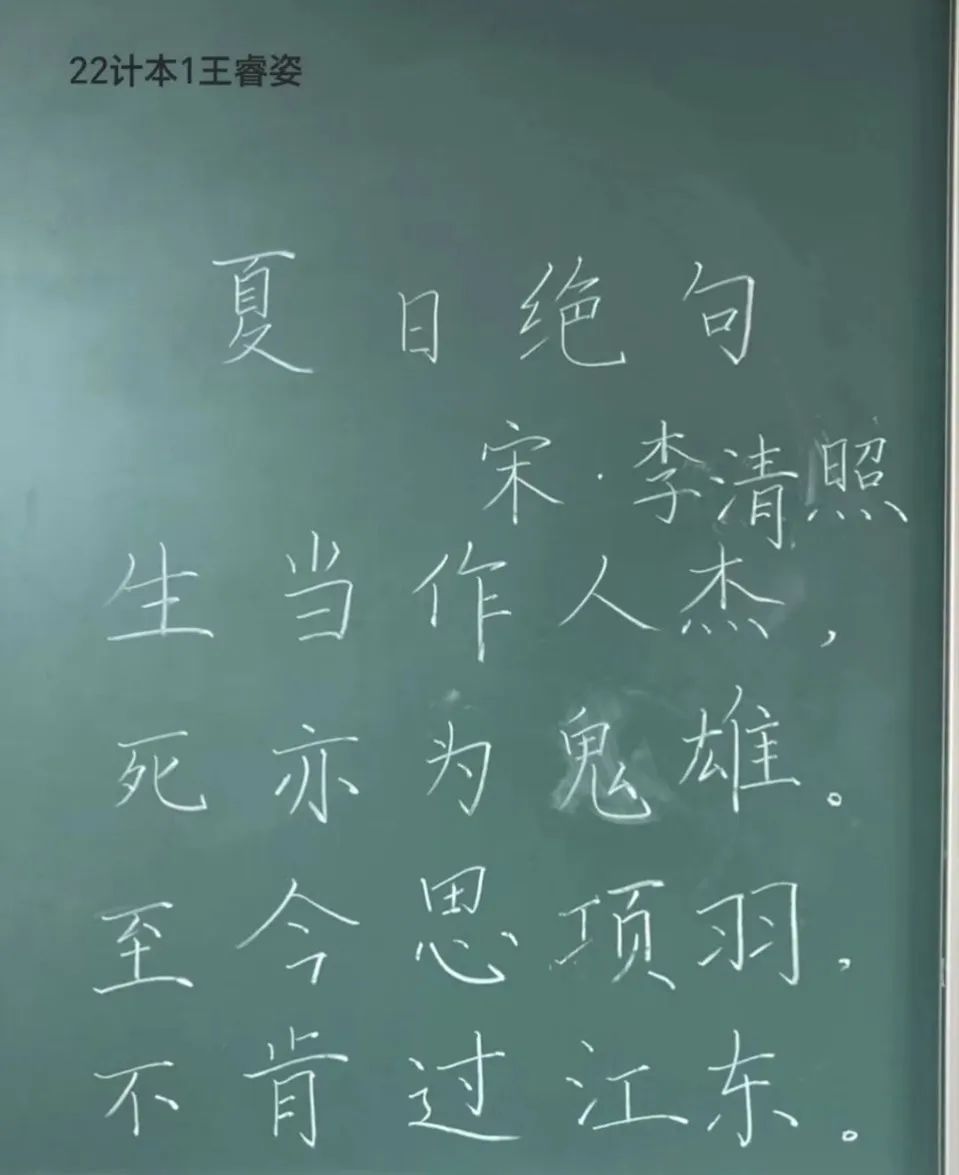 22计本1王睿姿
夏日绝句
宋·李清照
生当作人杰，
死亦为鬼雄。
至今思项羽，
不肯过江东。